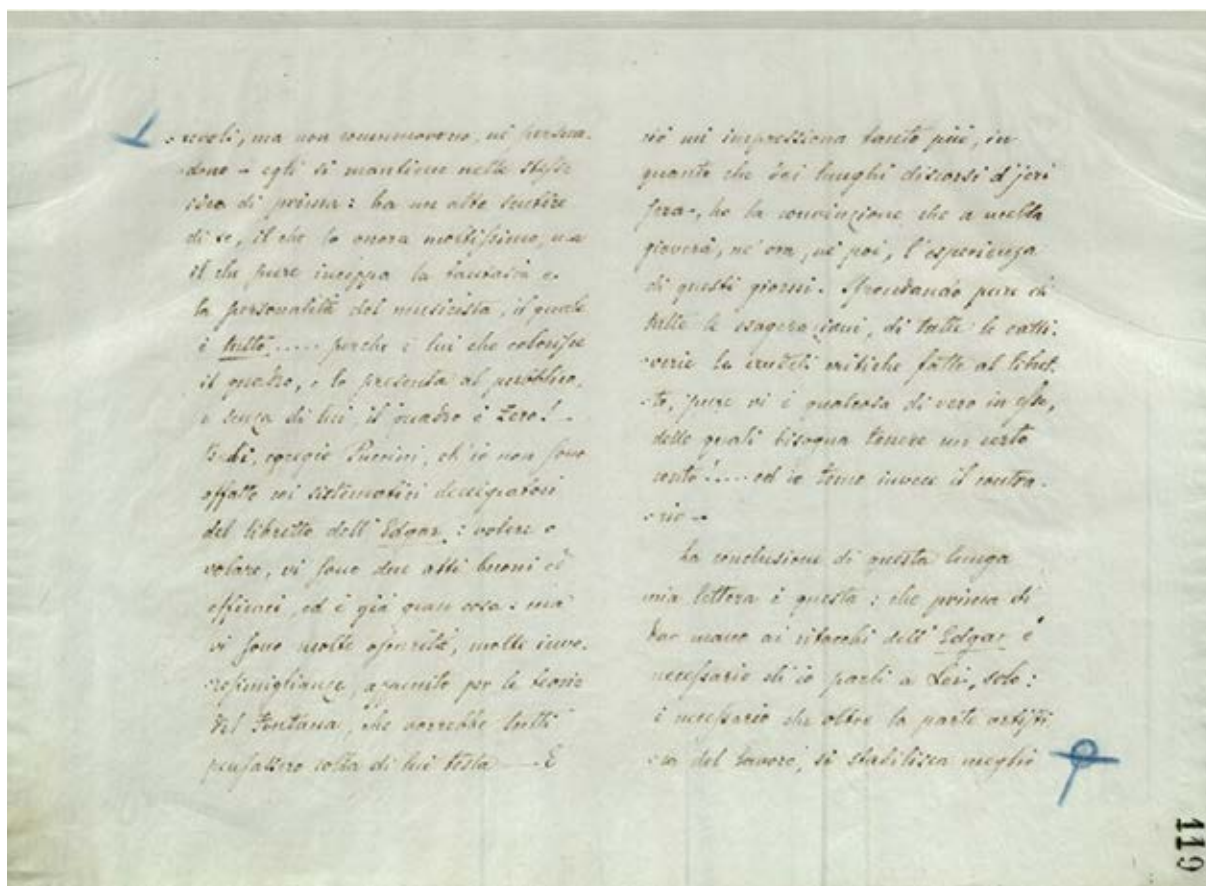 -revoli, ma non commuovono, nè persua-
-dono - egli si mantiene nelle stesse
idee di prima: ha un alto sentire
di se, il che lo onora moltissimo, ma
il che pure inceppa la fantasia e
la personalità del musicista, il quale
è tutto..... perchè è lui che colorisce
il quadro, e lo presenta al pubblico,
e senza di lui, il quadro è Zero! -
Badi, egregio Puccini, ch'io non sono
affatto coi sistematici denigratori
del libretto dell'Edgar: volere o
volare, vi sono due atti buoni ed
efficaci, ed è già gran cosa: ma
vi sono molte oscurità, molte inve-
rosimiglianze, per le teorie
del Fontana, che vorrebbe tutti
pensassero colla di lui testa — E
ciò mi impressiona tanto più, in
quanto che dai lunghi discorsi d'jeri
sera, ho la convinzione che a nulla
gioverà, nè ora, nè poi, l'esperienza
di questi giorni. Sfrondando pure di
tutte le esagerazioni, di tutte le catti-
-verie le crudeli critiche fatte al libret-
-to, pure vi è qualcosa di vero in esse,
delle quali bisogna tenere un certo
conto!..... ed io temo invece il contra-
-rio -
La conclusione di questa lunga
mia lettera è questa: che prima di
dar mano ai ritocchi dell'Edgar è
necessario ch'io parli a Lei, solo:
è necessario che oltre la parte artisti
-ca del lavoro, si stabilisca meglio
119